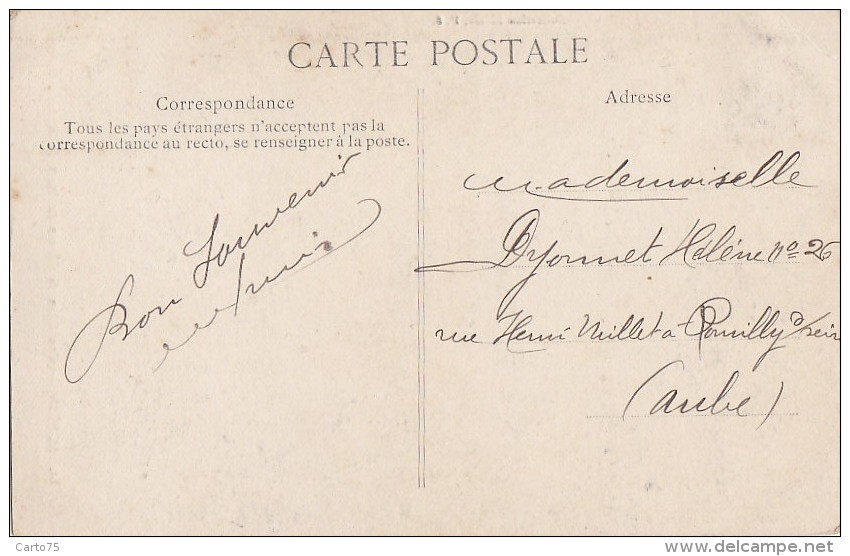 CARTE POSTALE
Correspondance
Tous les pays étrangers n'acceptent pas la
correspondance au recto, se renseigner à la poste.
Bon Souvenir
Adresse
Mademoiselle
Dyonnet Hélène nº 26
rue Henri Millet a Romilly s/sein
(Aube)
Carto75
www.delcampe.net